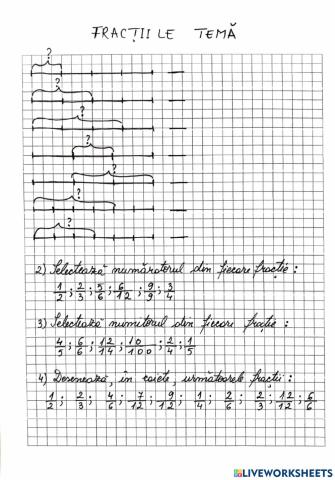 FRACȚIILE TEMĂ
?
?
?
?
?
?
?
2) Selectează numărătorul din fiecare fracție :
1/2 ; 2/3 ; 5/6 ; 6/12 ; 9/9 ; 3/4
3) Selectează numitorul din fiecare fracție :
4/5 ; 6/6 ; 12/14 ; 10/100 ; 2/4 ; 1/5
4) Desenează, în caiete, următoarele fracții :
1/2 ; 2/3 ; 4/6 ; 7/12 ; 9/12 ; 1/4 ; 2/6 ; 2/3 ; 12/12 ; 6/6
LIVEWORKSHEETS